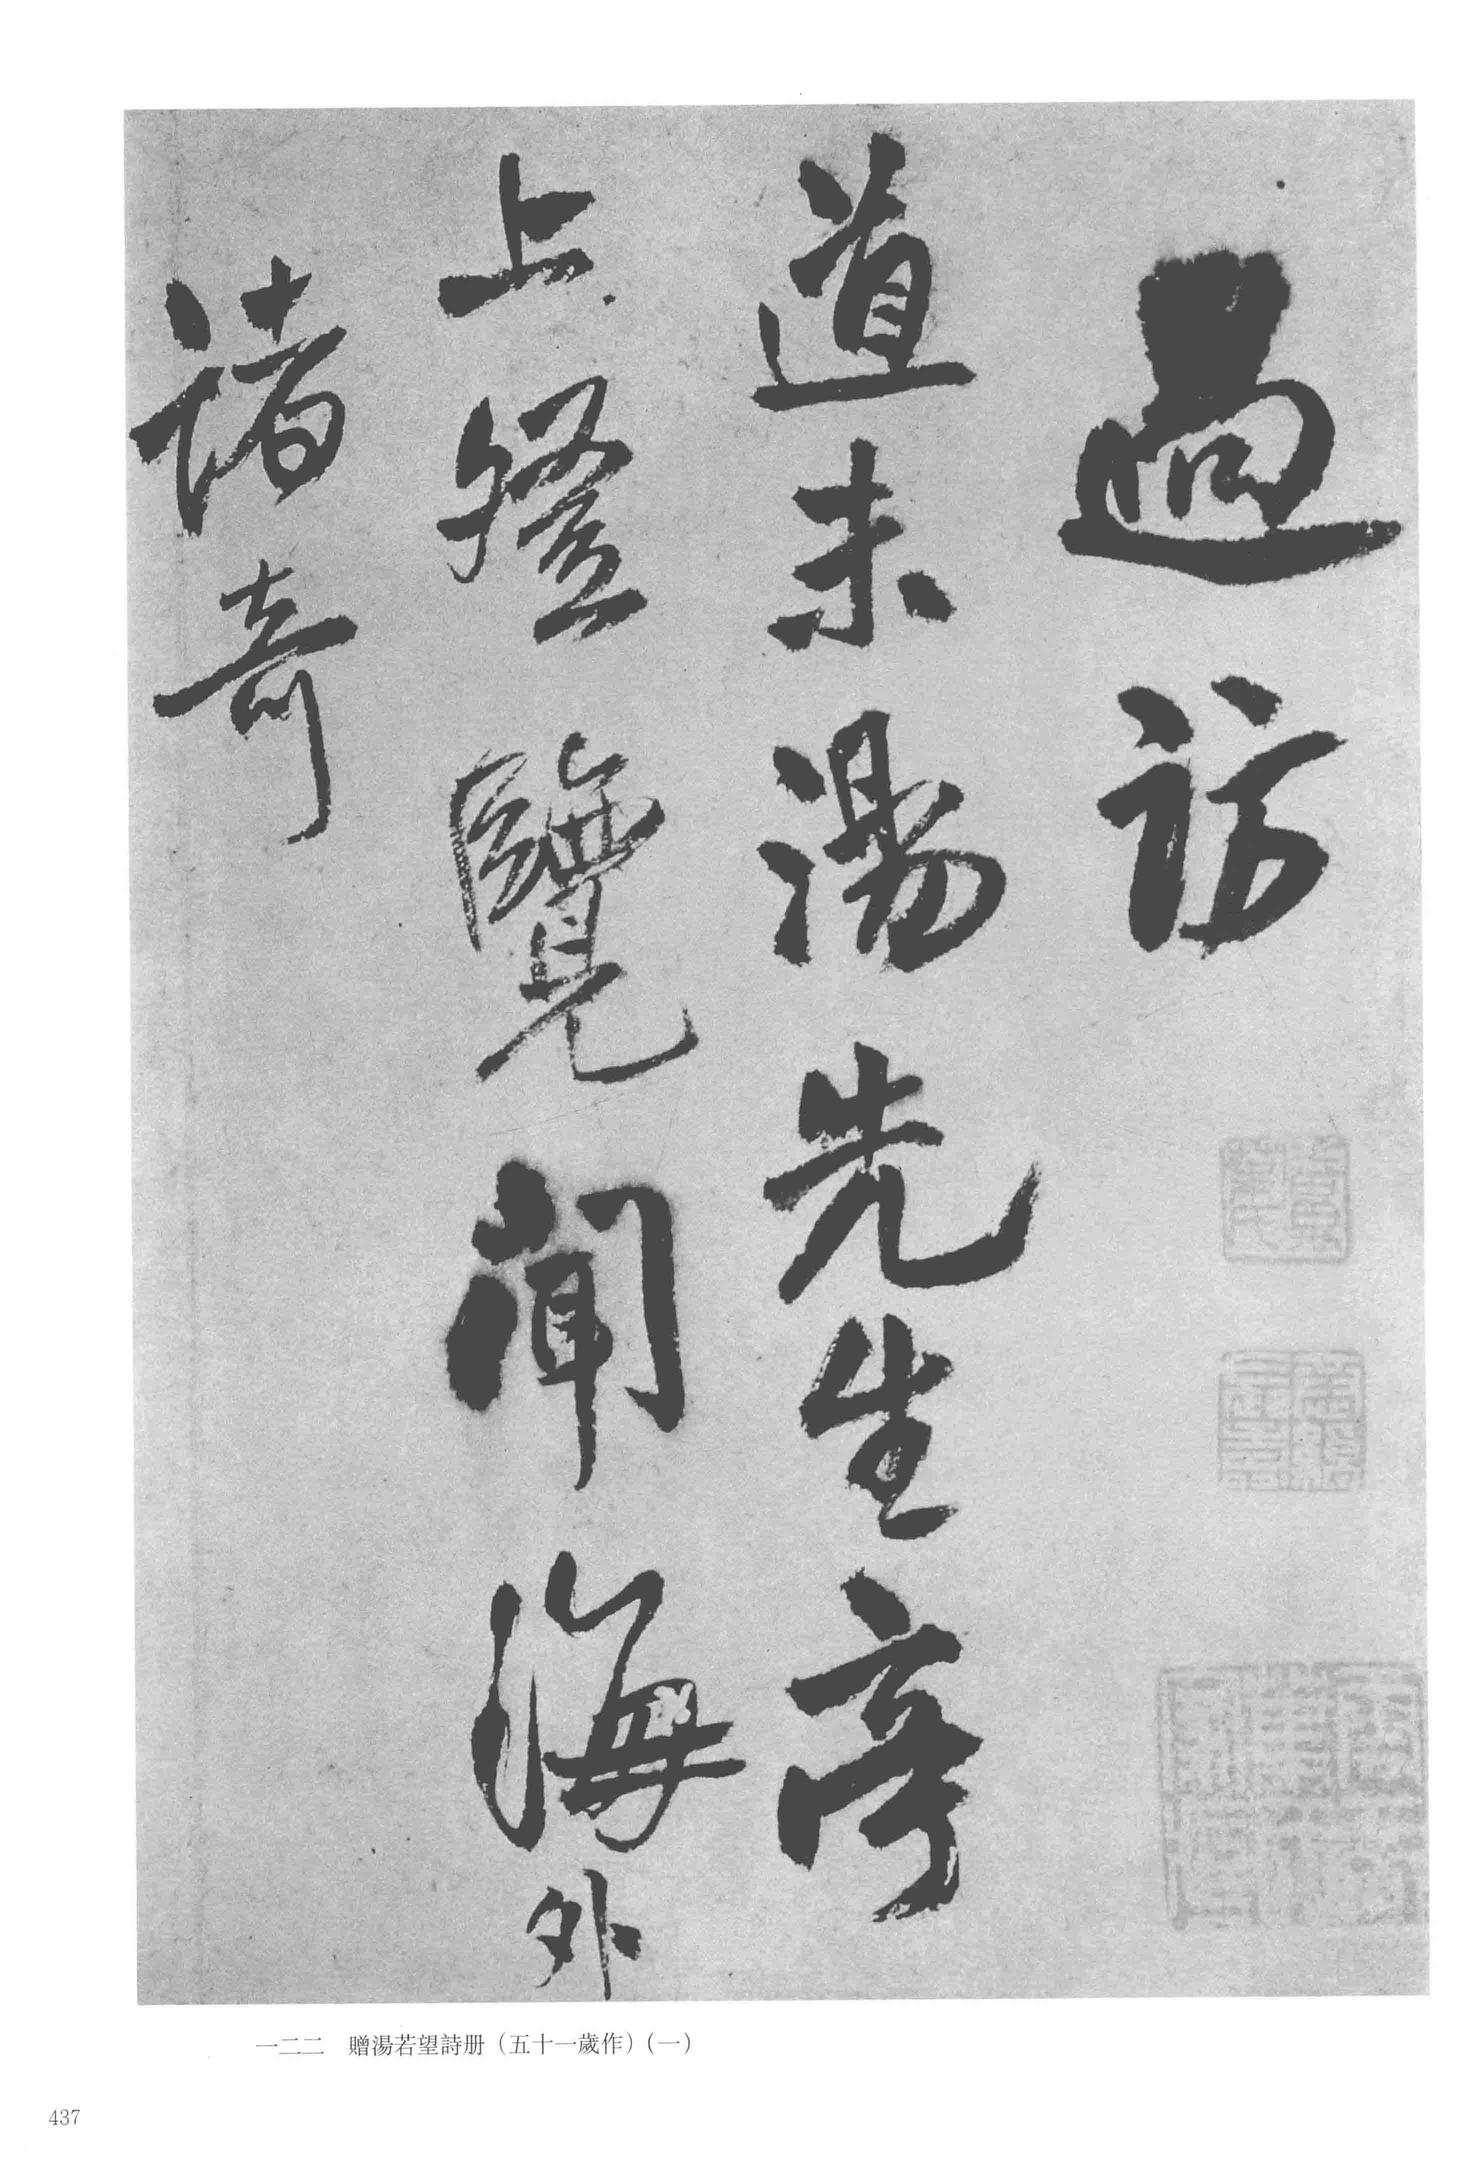 過訪
道未湯先生亭
上登覽聞海外
諸奇
一二二　贈湯若望詩册（五十一歲作）（一）
437